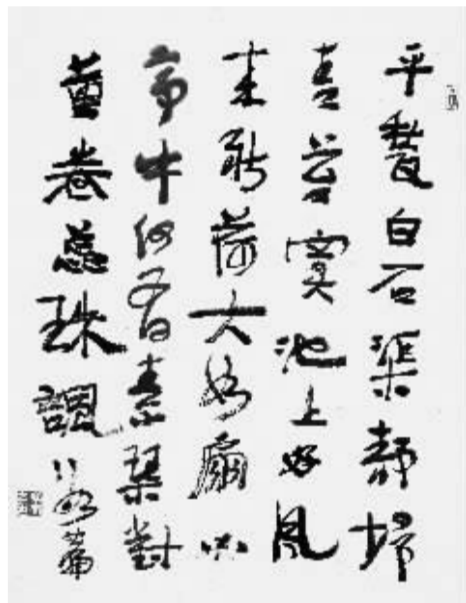 平甃白石渠靜掃
青苔院池上好風
來新荷大如扇小
亭中何有素琴對
黃卷蕊珠諷數篇